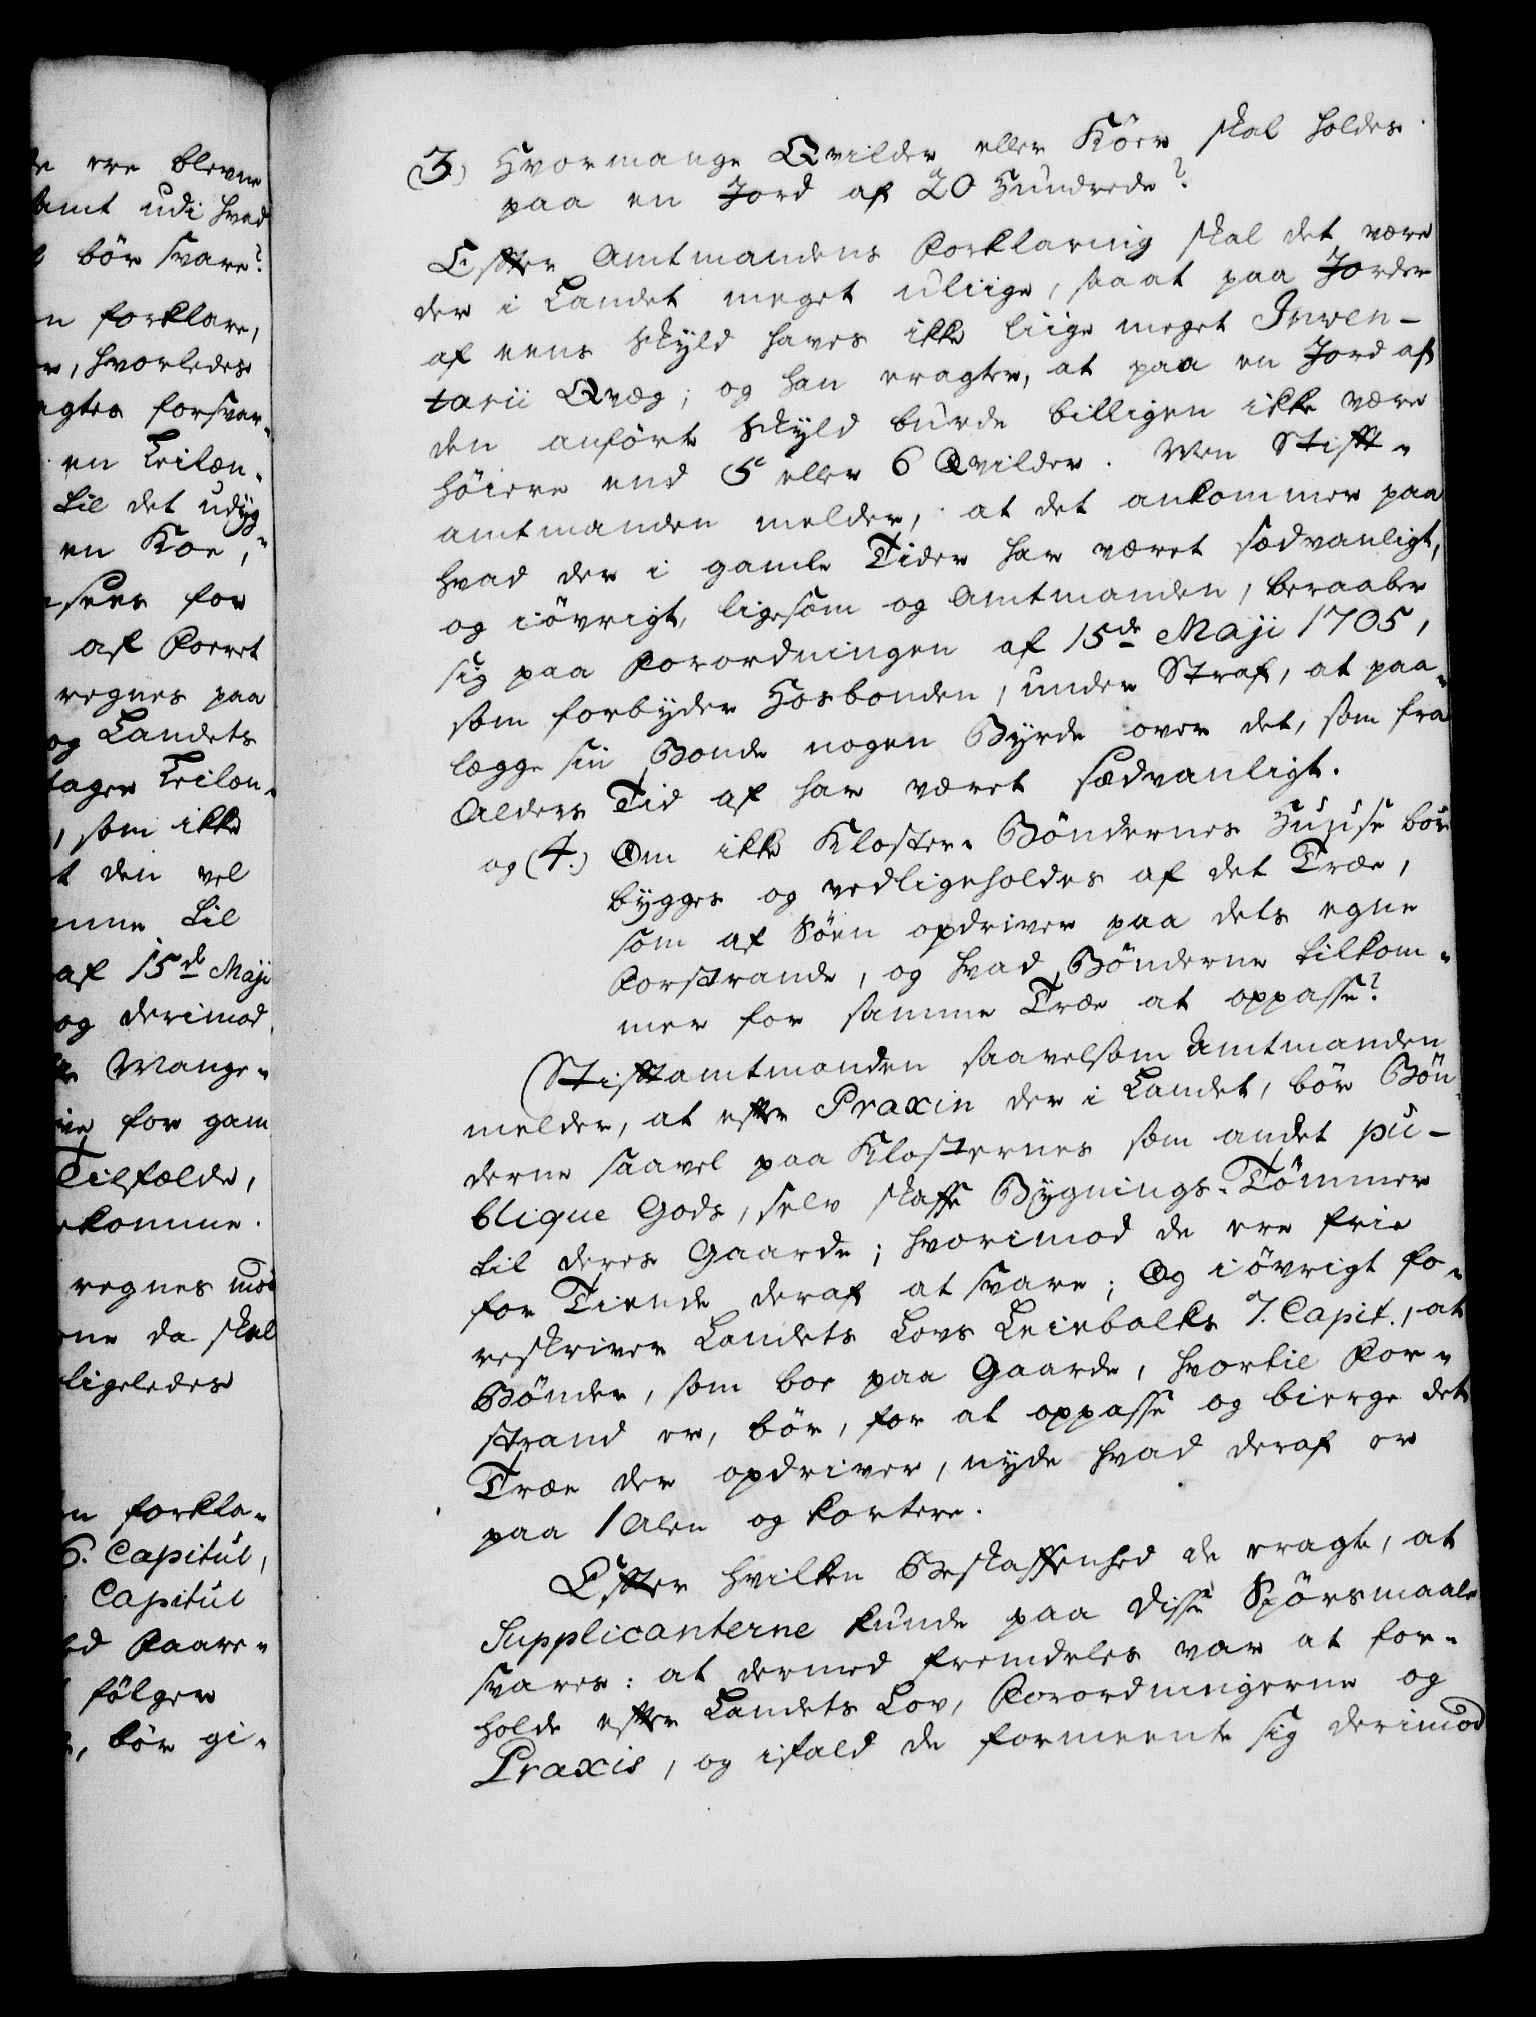 e ere blevne
Amt udi hvad
bör svare?
n forklare,
r, hvorledes
agtes forsvar-
en Leilæn-
til det udyg-
en Koe,
sees for
af Foeret
regnes paa
og Landets
tager Leilæn-
, som ikke
t den vel
mme til
af 15de Maji
og derimod
Mange-
ve for gam
Tilfælde,
komme.
regnes mod
ne da skal
ligeledes
n forkla-
6. Capitul,
Capitul
ed Faare-
følger
, bör gi-
(3.) Hvormange Qvilder eller Köer skal holdes
paa en Jord af 20 Hundrede?
Efter Amtmandens Forklaring skal det være
der i Landet meget uliige, saaat paa Jorder
af eens Skyld haves ikke liige meget Inven-
tarii Qvæg; og han eragter, at paa en Jord af
den anförte Skyld burde billigen ikke være
höiere end 5 eller 6 Qvilder. Men Stift-
amtmanden melder, at det ankommer paa
hvad der i gamle Tider har været sædvanligt,
og iövrigt, ligesom og Amtmanden, beraaber
sig paa Forordningen af 15de Maji 1705,
som forbyder Hosbonden, under Straf, at paa-
lægge sin Bonde nogen Byrde over det, som fra
Alders Tid af har været sædvanligt.
og (4.) Om ikke Kloster-Böndernes Huuse bör
bygges og vedligeholdes af det Træe,
som af Söen opdriver paa dets egne
Forstrande, og hvad Bönderne tilkom-
mer for samme Træe at oppasse?
Stiftamtmanden saavelsom Amtmanden
melder, at efter Praxin der i Landet, bör Bön-
derne saavel paa Klosternes som andet pu-
blique Gods, selv skaffe Bygnings-Tömmer
til deres Gaarde; hvorimod de ere frie
for Tiende deraf at svare; Og iövrigt fo-
reskriver Landets Lovs Leiebolks 7. Capit., at
Bönder, som boe paa Gaarde, hvortil For-
strand er, bör, for at oppasse og bierge det
Træe der opdriver, nyde hvad deraf er
paa 1 Alen og kortere.
Efter hvilken Beskaffenhed de eragte, at
Supplicanterne kunde paa disse Spörsmaale
svares: at dermed fremdeles var at for-
holde efter Landets Lov, Forordningerne og
Praxis, og ifald de formeente sig derimod